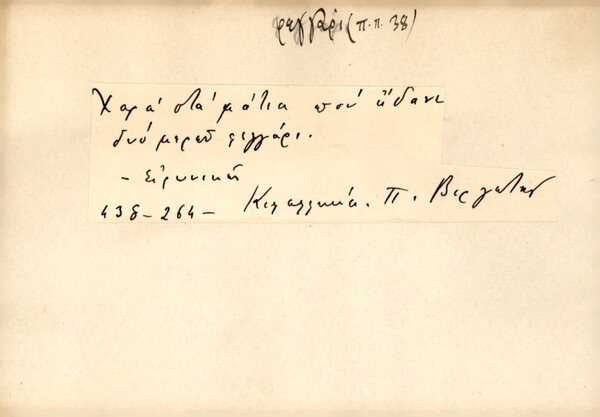 φεγγάρι (π.π. 38)
Χαρά στά μάτια πού είδανε
δυό μερώ φεγγάρι.
– Εἰρωνικῶς
438 – 264 – Κεφαλληνία. Π. Βεργωτής